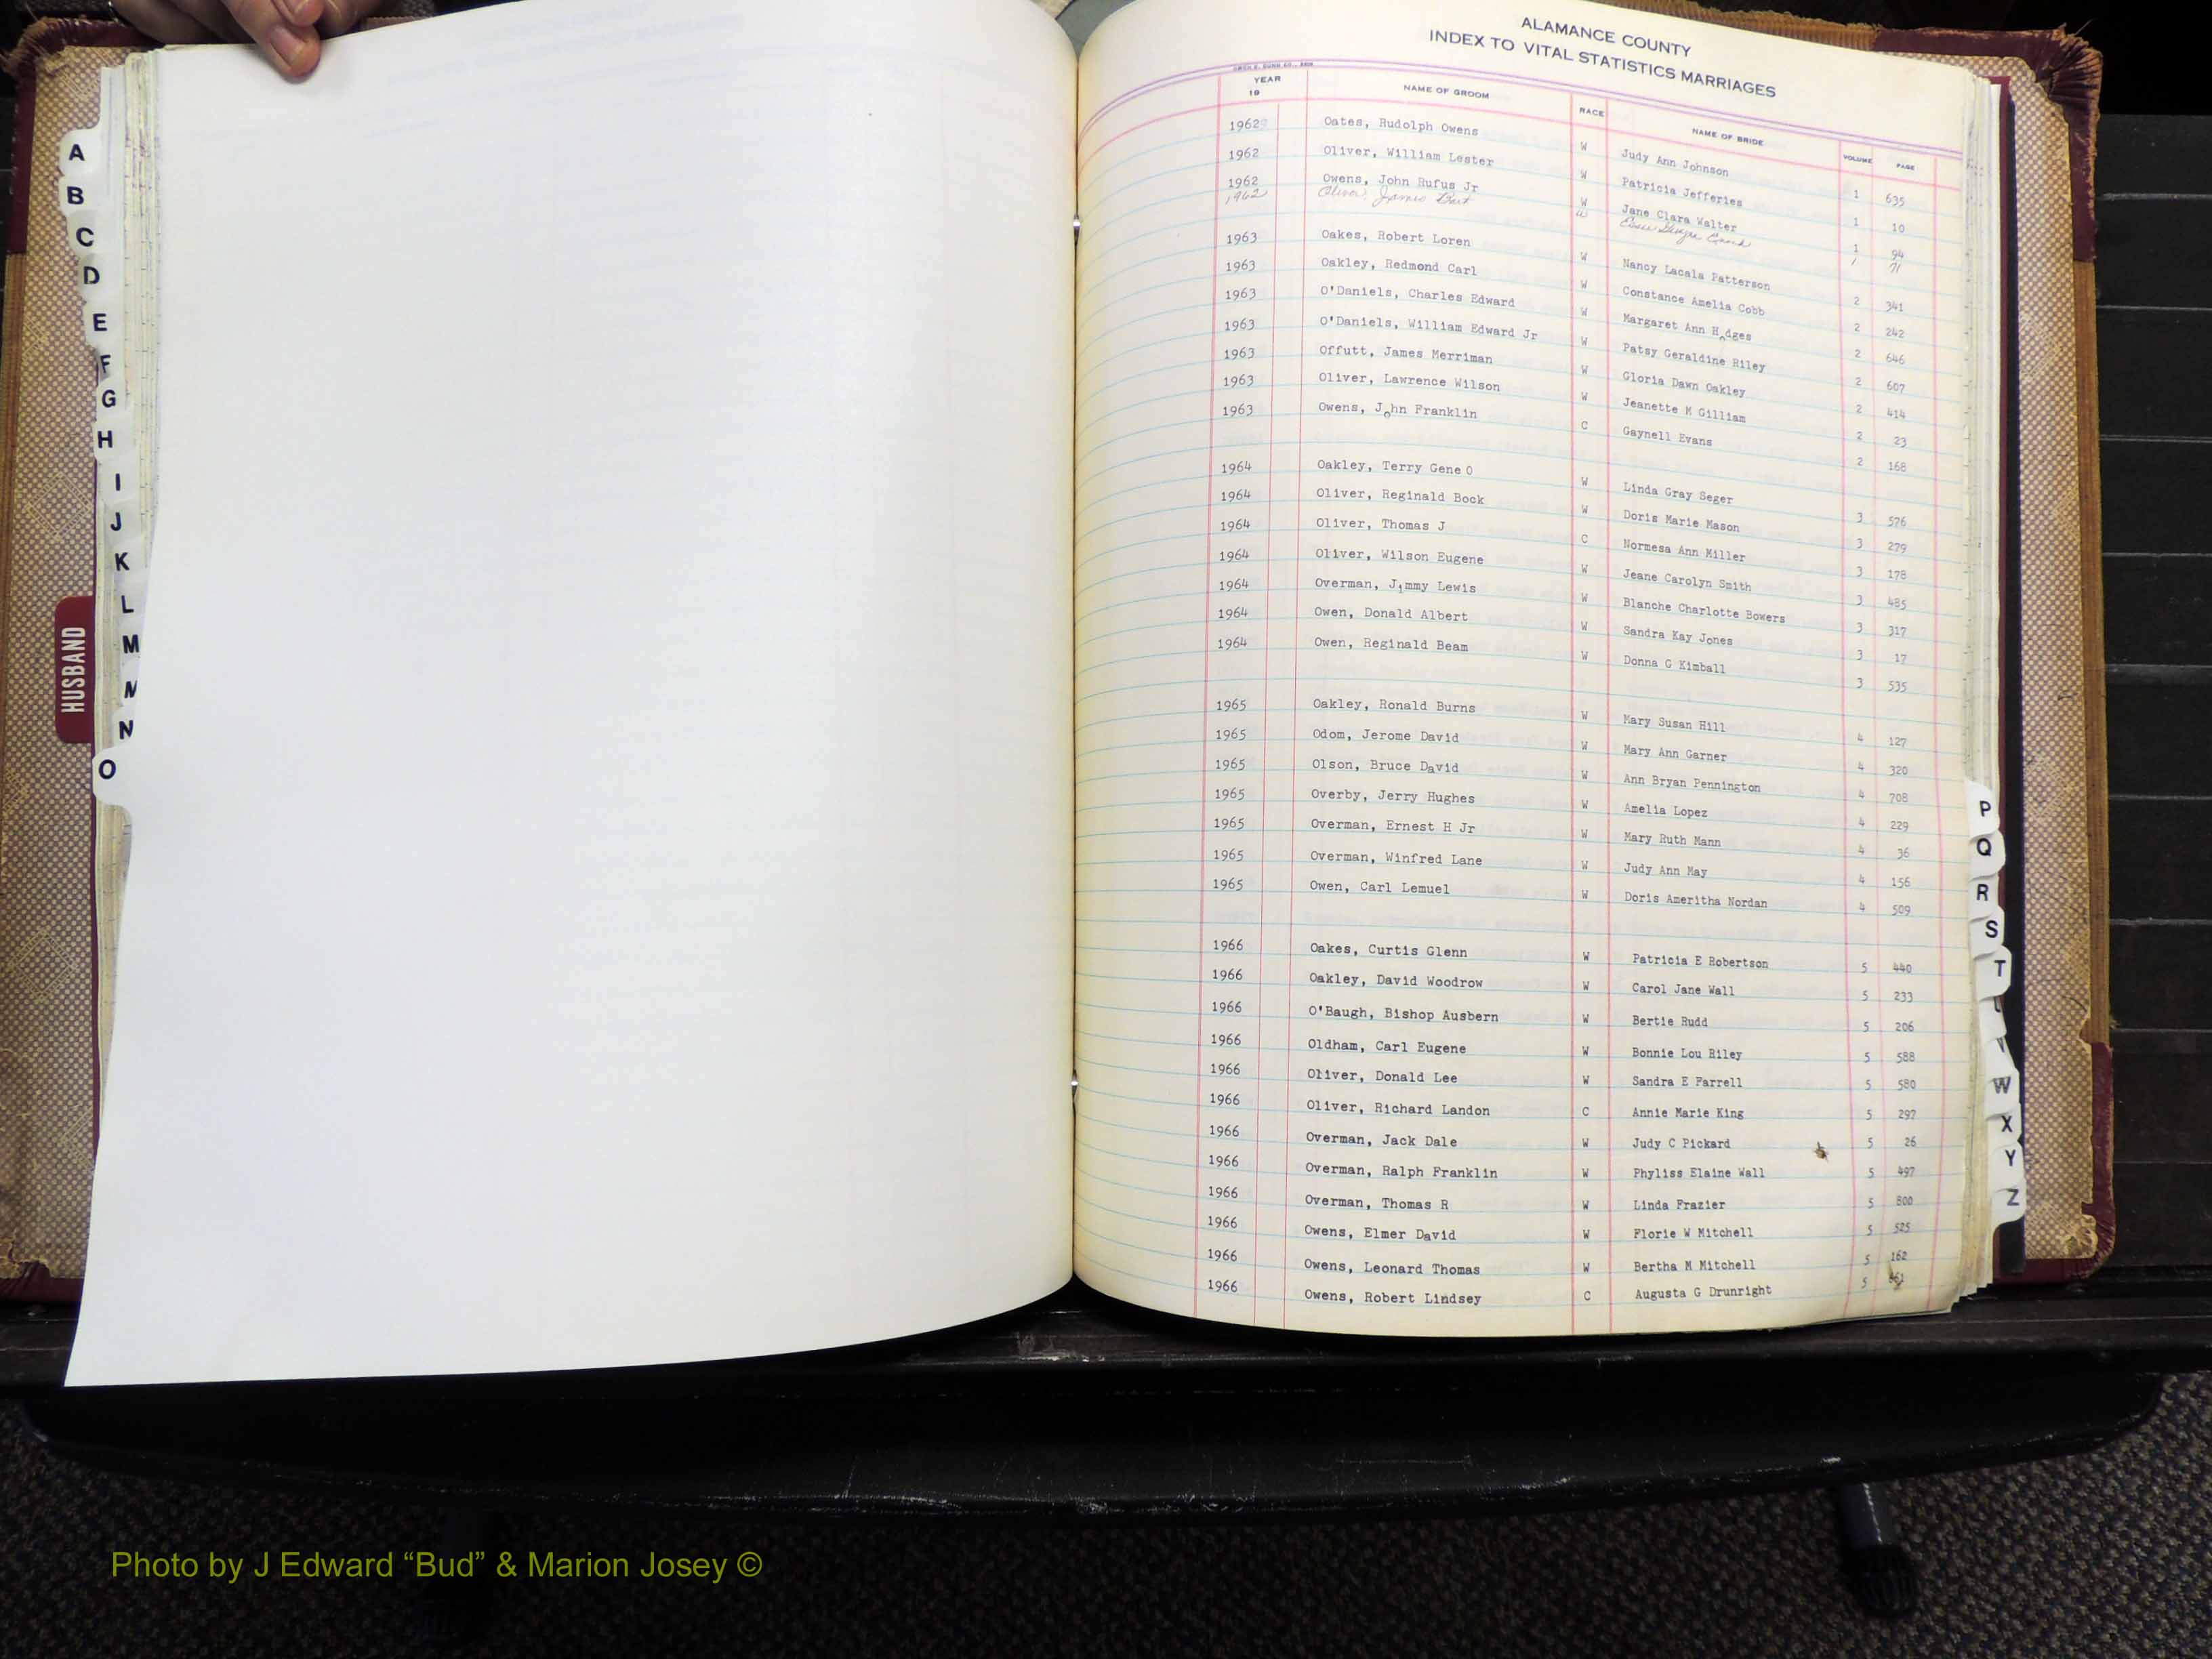 ALAMANCE COUNTY
INDEX TO VITAL STATISTICS MARRIAGES
YEAR 19 NAME OF GROOM RACE NAME OF BRIDE VOLUME PAGE
1962 Oates, Rudolph Owens W Judy Ann Johnson 1 635
1962 Oliver, William Lester W Patricia Jefferies 1 10
1962 Owens, John Rufus Jr W Jane Clara Walter 1 94
1962 Oliver, James W 1 71
1963 Oakes, Robert Loren W Nancy Lacala Patterson 2 341
1963 Oakley, Redmond Carl W Constance Amelia Cobb 2 242
1963 O'Daniels, Charles Edward W Margaret Ann Hodges 2 646
1963 O'Daniels, William Edward Jr W Patsy Geraldine Riley 2 607
1963 Offutt, James Merriman W Gloria Dawn Oakley 2 414
1963 Oliver, Lawrence Wilson W Jeanette M Gilliam 2 23
1963 Owens, John Franklin C Gaynell Evans 2 168
1964 Oakley, Terry Gene O W Linda Gray Seger 3 576
1964 Oliver, Reginald Bock W Doris Marie Mason 3 279
1964 Oliver, Thomas J C Normesa Ann Miller 3 178
1964 Oliver, Wilson Eugene W Jeane Carolyn Smith 3 485
1964 Overman, Jimmy Lewis W Blanche Charlotte Bowers 3 317
1964 Owen, Donald Albert W Sandra Kay Jones 3 17
1964 Owen, Reginald Beam W Donna G Kimball 3 535
1965 Oakley, Ronald Burns W Mary Susan Hill 4 127
1965 Odom, Jerome David W Mary Ann Garner 4 320
1965 Olson, Bruce David W Ann Bryan Pennington 4 708
1965 Overby, Jerry Hughes W Amelia Lopez 4 229
1965 Overman, Ernest H Jr W Mary Ruth Mann 4 36
1965 Overman, Winfred Lane W Judy Ann May 4 156
1965 Owen, Carl Lemuel W Doris Ameritha Nordan 4 509
1966 Oakes, Curtis Glenn W Patricia E Robertson 5 440
1966 Oakley, David Woodrow W Carol Jane Wall 5 233
1966 O'Baugh, Bishop Ausbern W Bertie Rudd 5 206
1966 Oldham, Carl Eugene W Bonnie Lou Riley 5 588
1966 Oliver, Donald Lee W Sandra E Farrell 5 580
1966 Oliver, Richard Landon C Annie Marie King 5 297
1966 Overman, Jack Dale W Judy C Pickard 5 26
1966 Overman, Ralph Franklin W Phyliss Elaine Wall 5 497
1966 Overman, Thomas R W Linda Frazier 5 800
1966 Owens, Elmer David W Florie W Mitchell 5 525
1966 Owens, Leonard Thomas W Bertha M Mitchell 5 162
1966 Owens, Robert Lindsey C Augusta G Drunright 5
A
B
C
D
E
F
G
H
I
J
K
L
M
M
N
O
HUSBAND
P
Q
R
S
T
V
W
X
Y
Z
Photo by J Edward “Bud” & Marion Josey ©